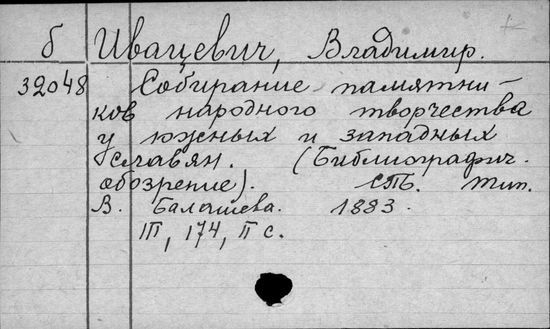 б Ивацевич, Владимир.
32048 Собирание памятни-
ков народного творчества
у южных и западных
славян. (Библиографич.
обозрение). СПб. Тип.
В. Балашева. 1883.
III, 174, II с.